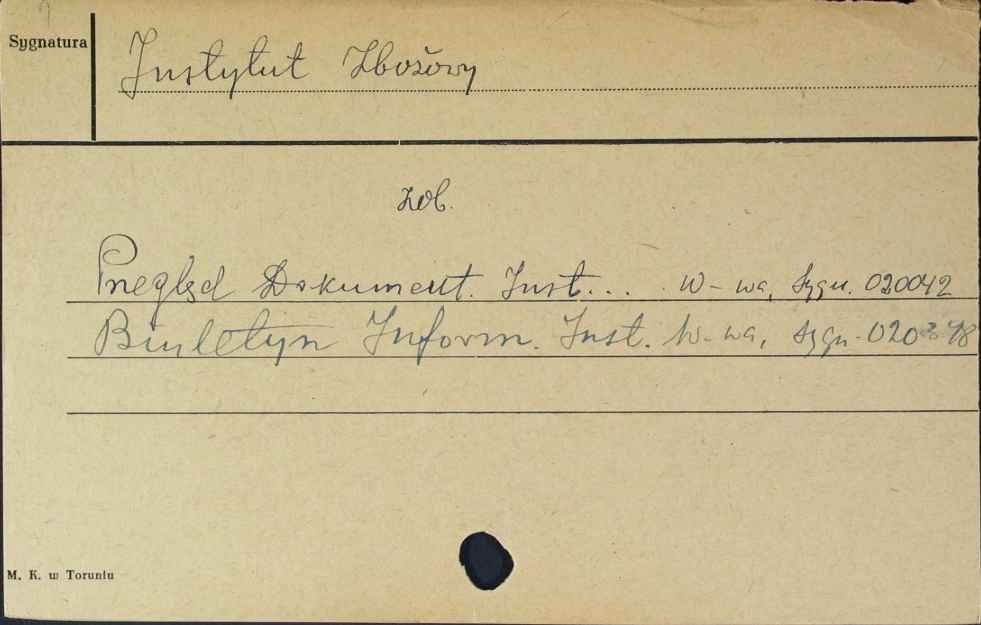 Sygnatura
Instytut Zbożowy
zob.
Przegląd Dokument. Inst... W-wa, Sygn. 020042
Biuletyn Inform. Inst. W-wa, Sygn.
M. K. w Toruniu